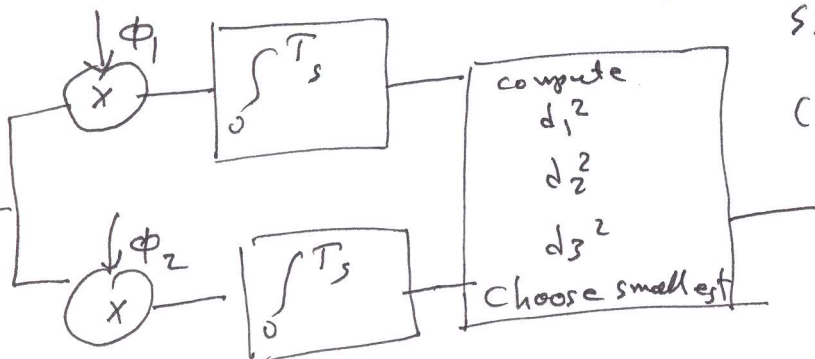 ϕ₁
x
∫₀ᵀˢ
compute
d₁²
d₂²
d₃²
Choose smallest
ϕ₂
x
∫₀ᵀˢ
S
C